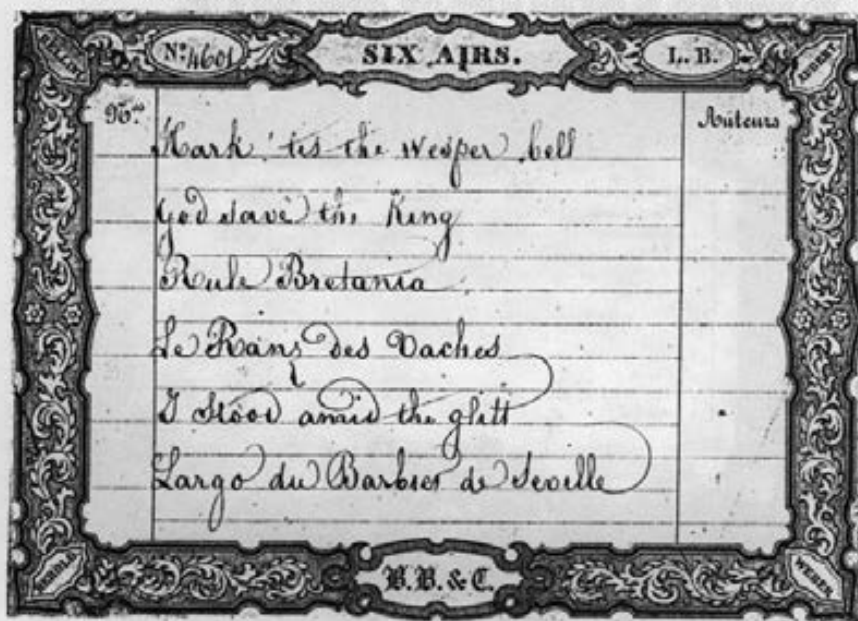 BELLINI
Nº 4601
SIX AIRS.
L. B.
AUBERT
Nos
Auteurs
Hark 'tis the wesper bell
God save the King
Rule Bretania
Le Ranz des Vaches
I Stood amid the glitt
Largo du Barbier de Seville
B.B. & C.
WEBER